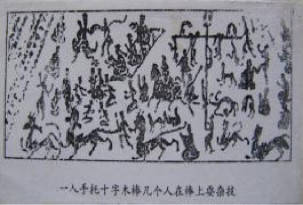 一人手托十字木棒几个人在棒上耍杂技